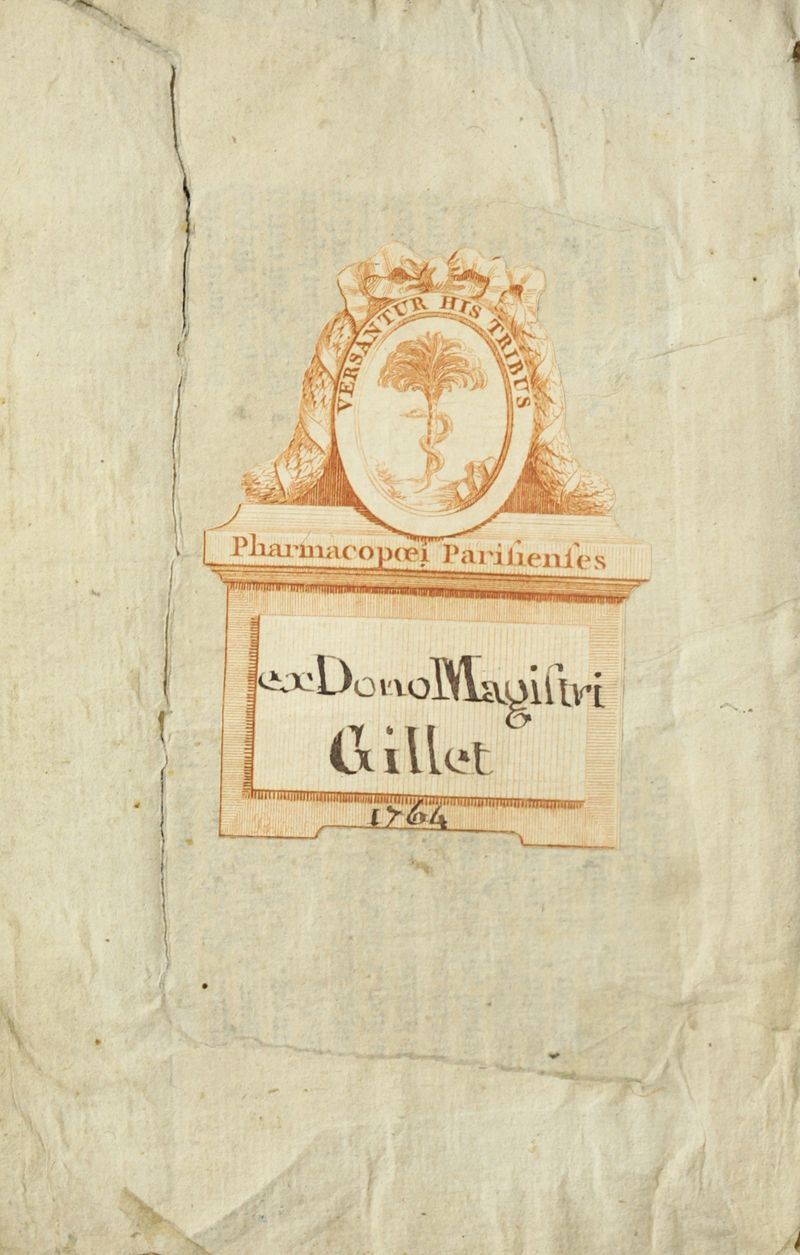 VERSANTUR HIS TRIBUS
Pharmacopœi Pariſienſes
ex Dono Magiſtri
Gillet
1764